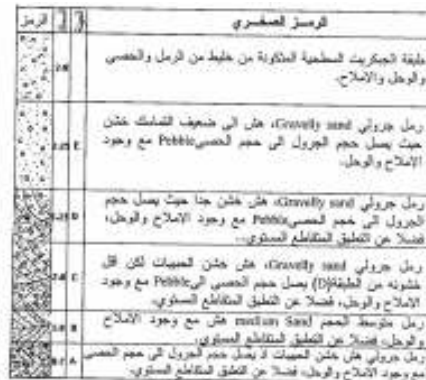 الرمز الوصف الصخري
طبقة الجبكريت السطحية المتكونة من خليط من الرمل والحصى
والوحل والاملاح.
رمل جرولي Gravelly sand، هش الى ضعيف التماسك خشن
E حيث يصل حجم الجرول الى حجم الحصى Pebble مع وجود
الاملاح والوحل.
رمل جرولي Gravelly sand، هش خشن جدا حيث يصل حجم
D الجرول الى حجم الحصى Pebble مع وجود الاملاح والوحل،
فضلا عن التطبق المتقاطع المستوي..
رمل جرولي Gravelly sand، هش خشن الحبيبات لكن اقل
C خشونه من الطبقة(D) يصل حجم الحصى الى Pebble مع وجود
الاملاح والوحل، فضلا عن التطبق المتقاطع المستوي.
رمل متوسط الحجم medium Sand هش مع وجود الاملاح
B والوحل، فضلا عن التطبق المتقاطع المستوي.
رمل جرولي هش خشن الحبيبات اذ يصل حجم الجرول الى حجم الحصى
A مع وجود الاملاح والوحل، فضلا عن التطبق المتقاطع المستوي.